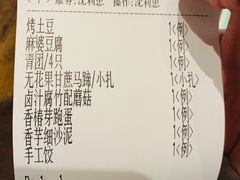 服务:沈利忠 操作:沈利忠
烤土豆 1<例>
麻婆豆腐 1<例>
青团/4只 1<例>
无花果甘蔗马蹄/小扎 1<小扎>
卤汁腐竹配蘑菇 1<例>
香椿芽跑蛋 1<例>
香芋细沙泥 1<例>
手工饺 1<例>